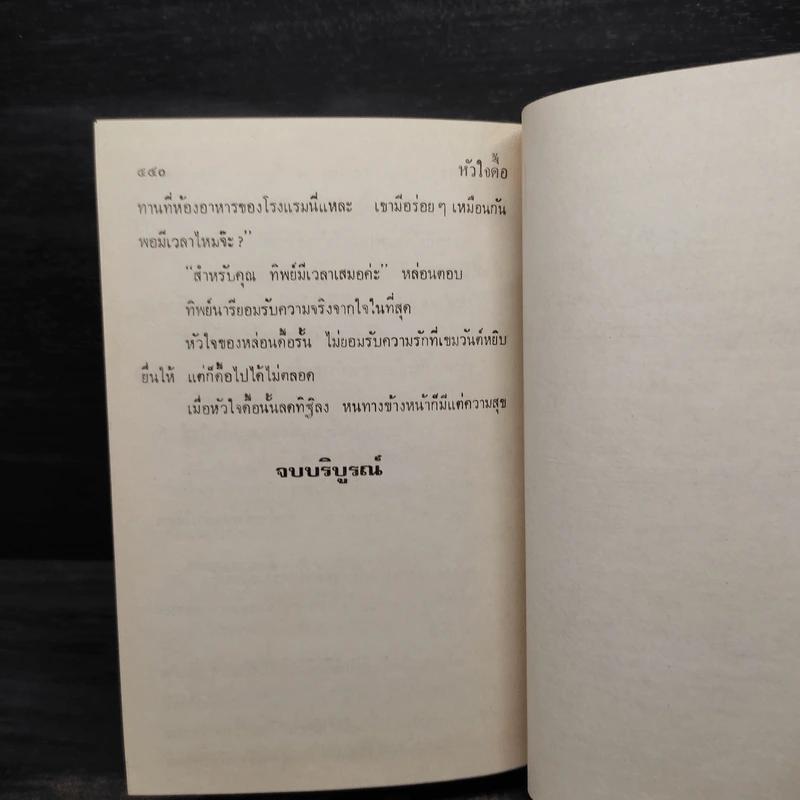 ๔๔๐ หัวใจดื้อ
ทานที่ห้องอาหารของโรงแรมนี่แหละ เขามีอร่อยๆ เหมือนกัน
พอมีเวลาไหมจ๊ะ?”
“สำหรับคุณ ทิพย์มีเวลาเสมอค่ะ” หล่อนตอบ
ทิพย์นารียอมรับความจริงจากใจในที่สุด
หัวใจของหล่อนดื้อรั้น ไม่ยอมรับความรักที่เขมวันต์หยิบ
ยื่นให้ แต่ก็ดื้อไปได้ไม่ตลอด
เมื่อหัวใจดื้อนั้นลดทิฐิลง หนทางข้างหน้าก็มีแต่ความสุข
จบบริบูรณ์